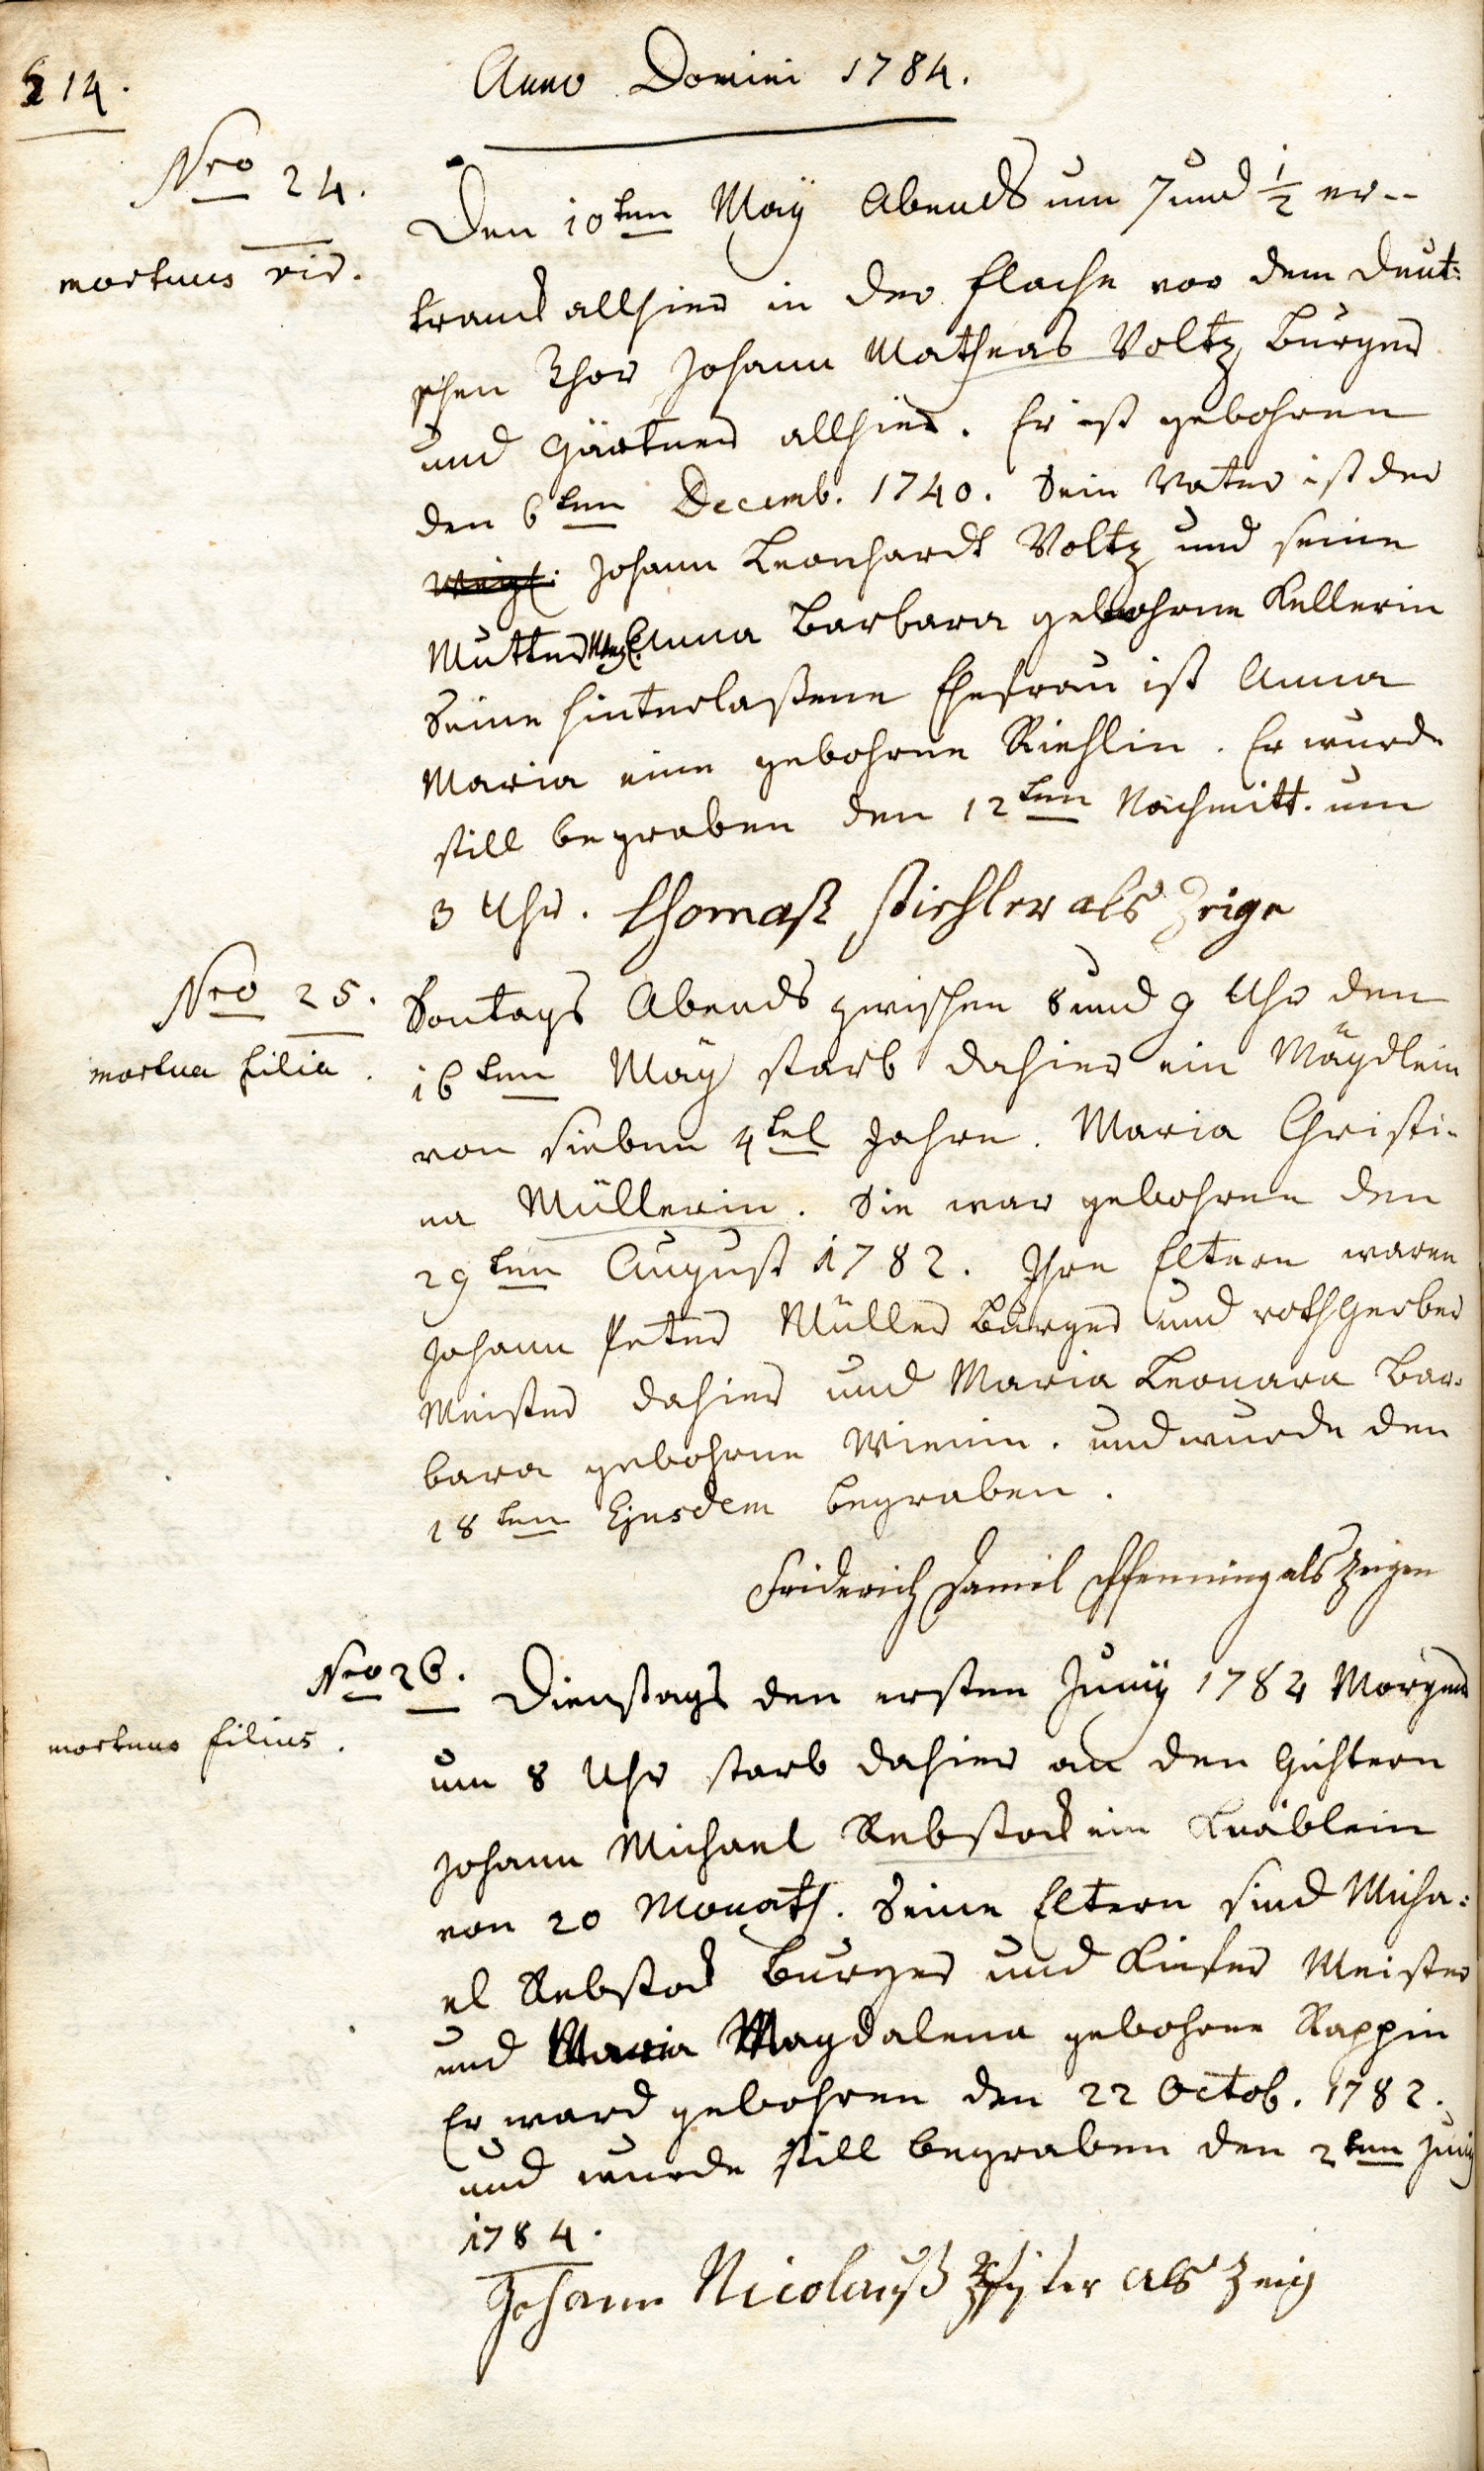 214.
Anno Domini 1784.
Nro 24.
mortuus vir.
Den 10ten Maÿ Abends um 7 und ½ er--
tranck allhier in der Flache vor dem Deut:
schen Thor Johann Matheas Voltz Burger
und Gärtner allhier. Er ist gebohren
den 6ten Decemb. 1740. Sein Vater ist der
Johann Leonhardt Voltz und seine
Mutter Anna Barbara gebohrne Kellerin
Seine hinterlaßene Ehefrau ist Anna
Maria eine gebohrne Riehlin. Er wurde
still begraben den 12ten Nachmitt. um
3 Uhr. Thomaß Stiehler als Zeige
Nro 25.
mortua filia.
Sontags Abends zwischen 8 und 9 Uhr den
16ten Maÿ starb dahier ein Mägdlein
von sieben 4tel Jahre. Maria Christi-
na Müllerin. Sie war gebohren den
29ten August 1782. Ihre Eltern waren
Johann Peter Müller Burger und rothgerber
Meister dahier und Maria Leonara Bar-
bara gebohrne Wienin. und wurde den
18ten Ejusdem begraben.
Friderich Daniel Pfenning als Zeigen
Nro 26.
mortuus filius.
Dienstags den ersten Junÿ 1784 Morgens
um 8 Uhr starb dahier an den Gichtern
Johann Michael Rebstock ein Knäblein
von 20 Monath. Seine Eltern sind Micha:
el Rebstock Burger und Kiefer Meister
und Maria Magdalena gebohrne Rappin
Er ward gebohren den 22 Octob. 1782.
und wurde still begraben den 2ten Junÿ
1784.
Johann Nicolauß Pfister als Zeig